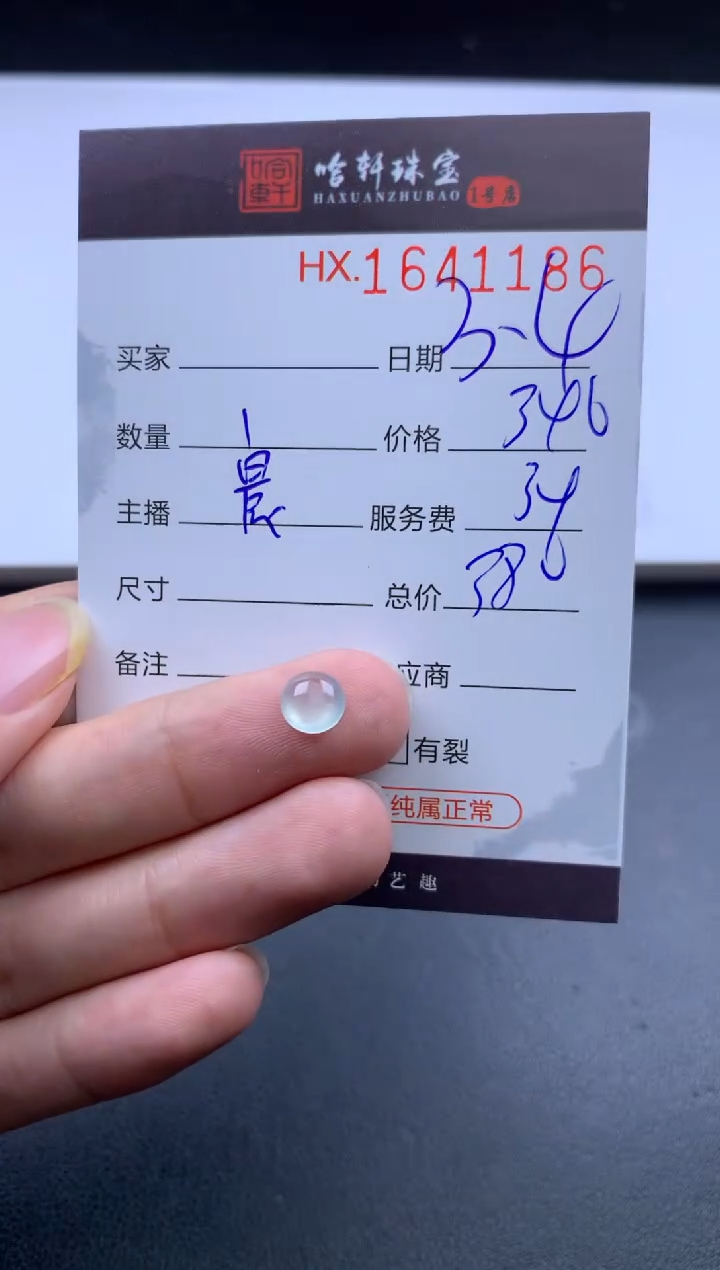 哈轩珠宝
HAXUANZHUBAO 1号店
HX.1641186
买家 日期 3.4
数量 1 价格 346
主播 晨 服务费 34
尺寸 总价 380
备注 应商
有裂
纯属正常
艺趣